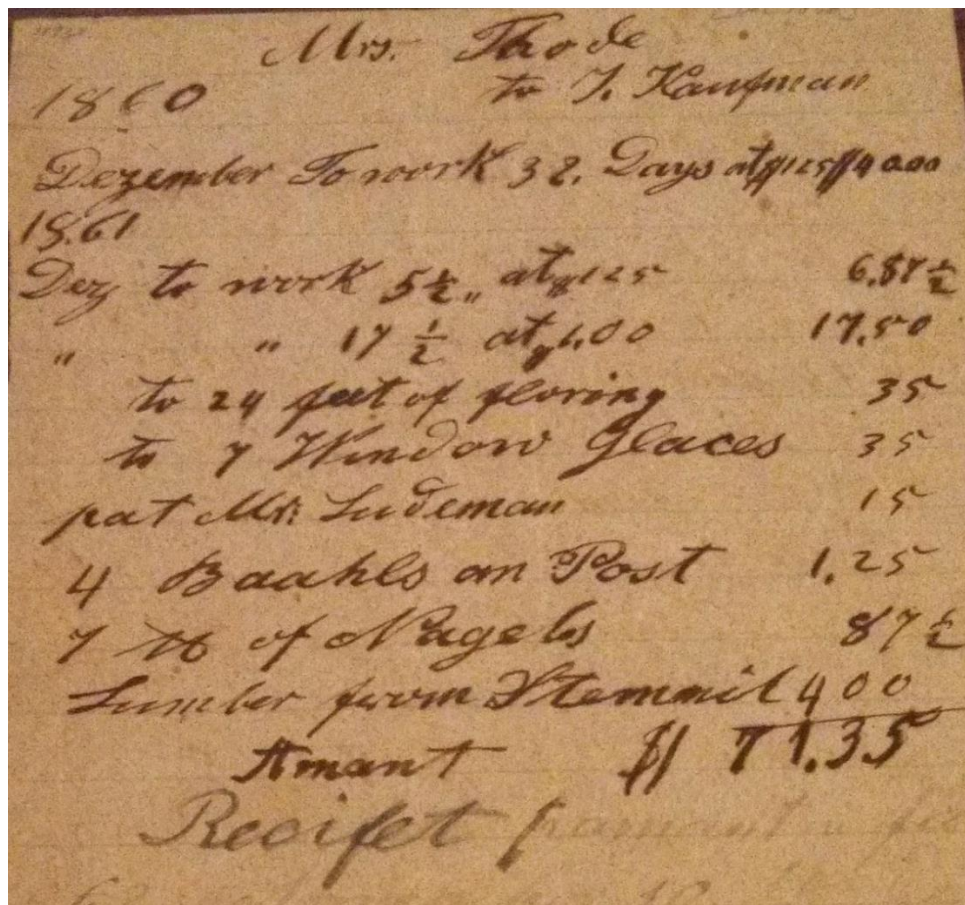 Mrs. Thode
1860 to T. Kaufman
Dezember To work 32. Days at $1.25 $40.00
1861
Dez to work 5 1/2 „ at $1.25 6.87 1/2
" " 17 1/2 at $1.00 17.50
to 24 feet of floring 35
to 7 Window Glaces 35
pat Mr. Ludeman 15
4 Baahls an Post 1.25
7 ℔ of Nagels 87 1/2
Lumber from Stemmil 400
Amant $ 71.35
Recifet